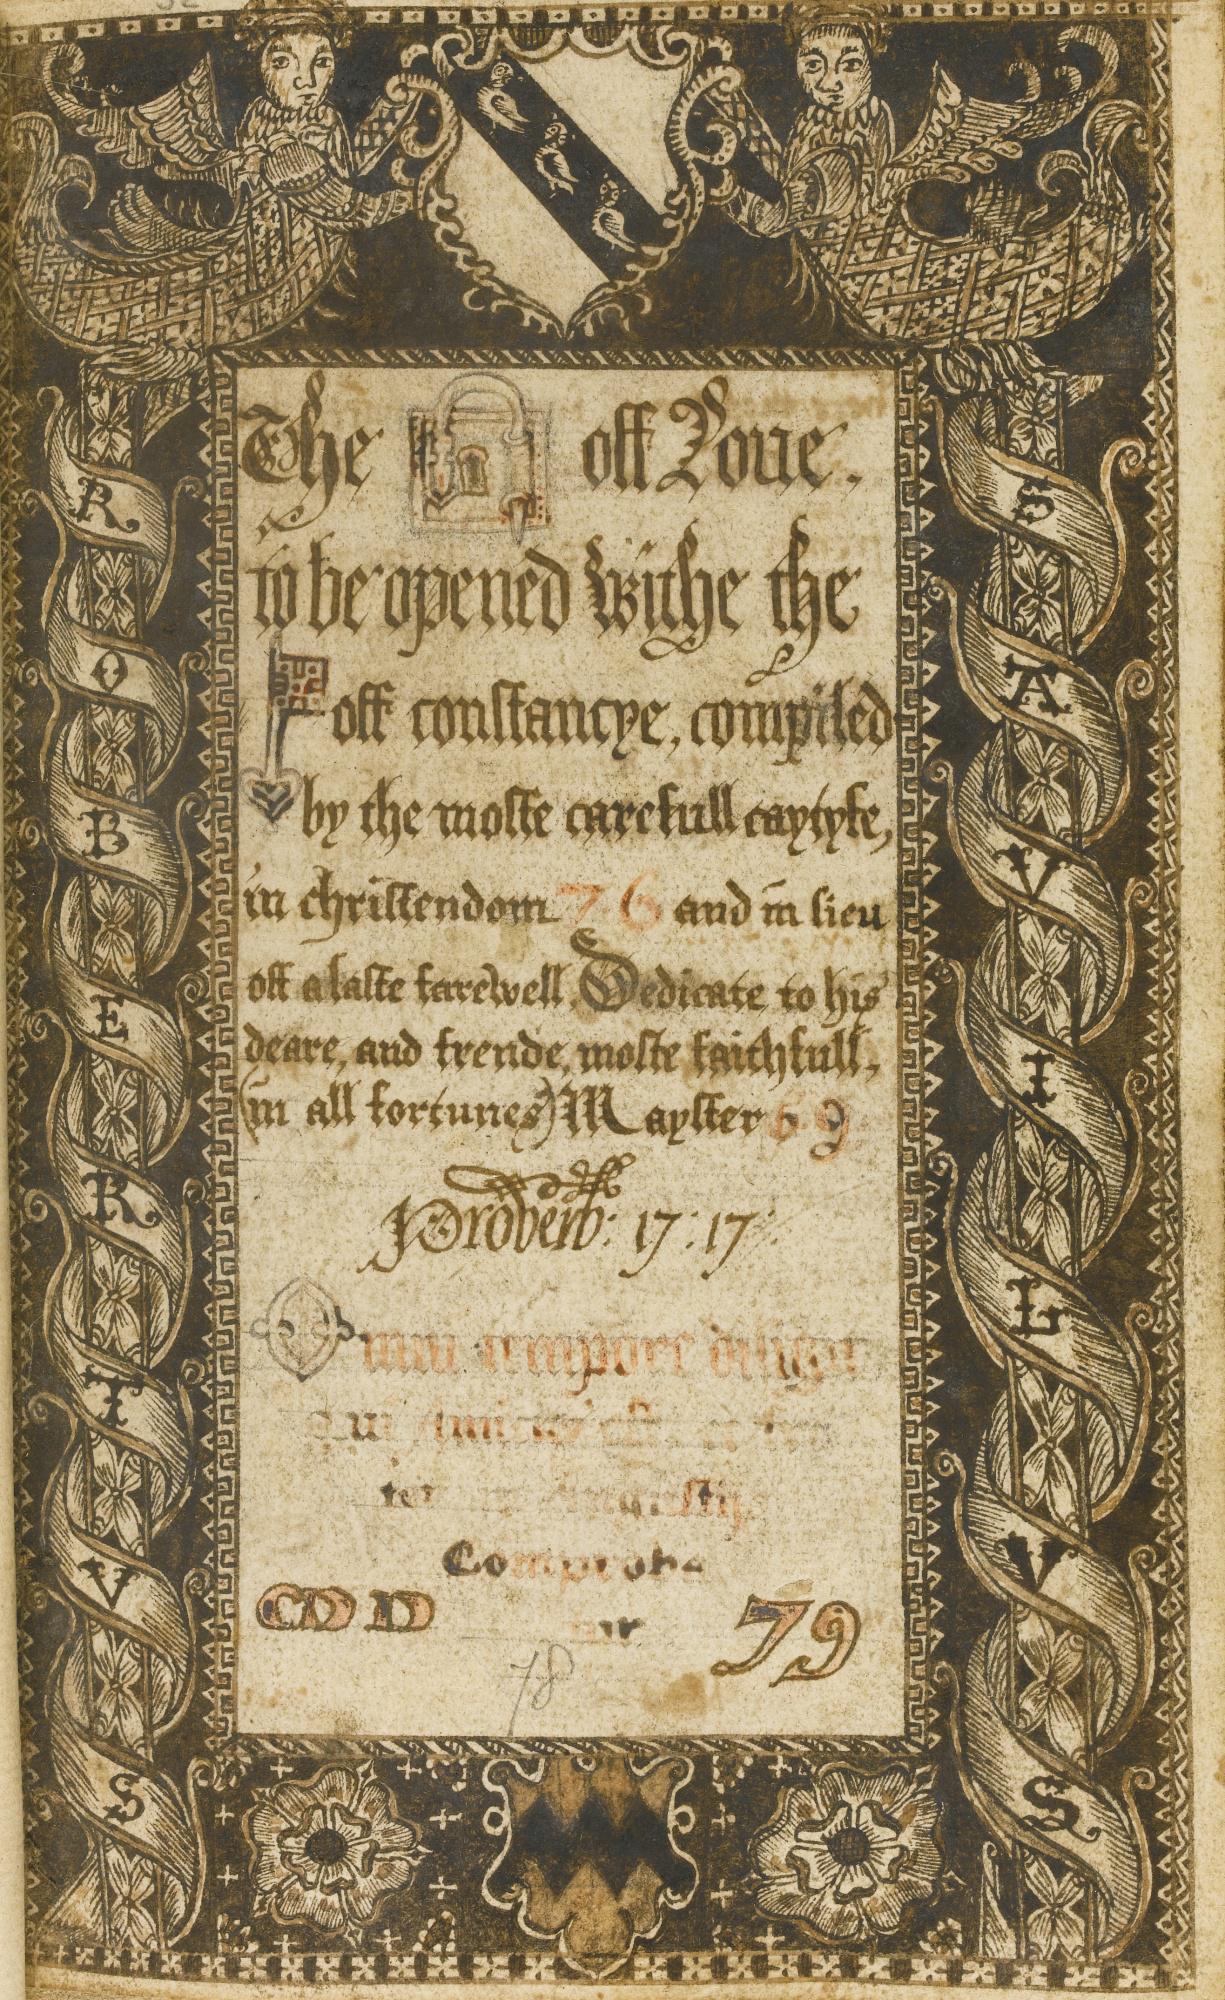 The off Loue.
to be opened withe the
off constancye, compiled
by the moste carefull caytyfe,
in christendom 76 and in lieu
off a laste farewell Dedicate to his
deare, and frende, moste faithfull,
(in all fortunes) Mayster 69
Proverb: 17:17:
Omni tempore diligit
qui Amicus est
Angustijs
Comproba
tur
CDD 79
78
ROBERTVS
SAVILVS